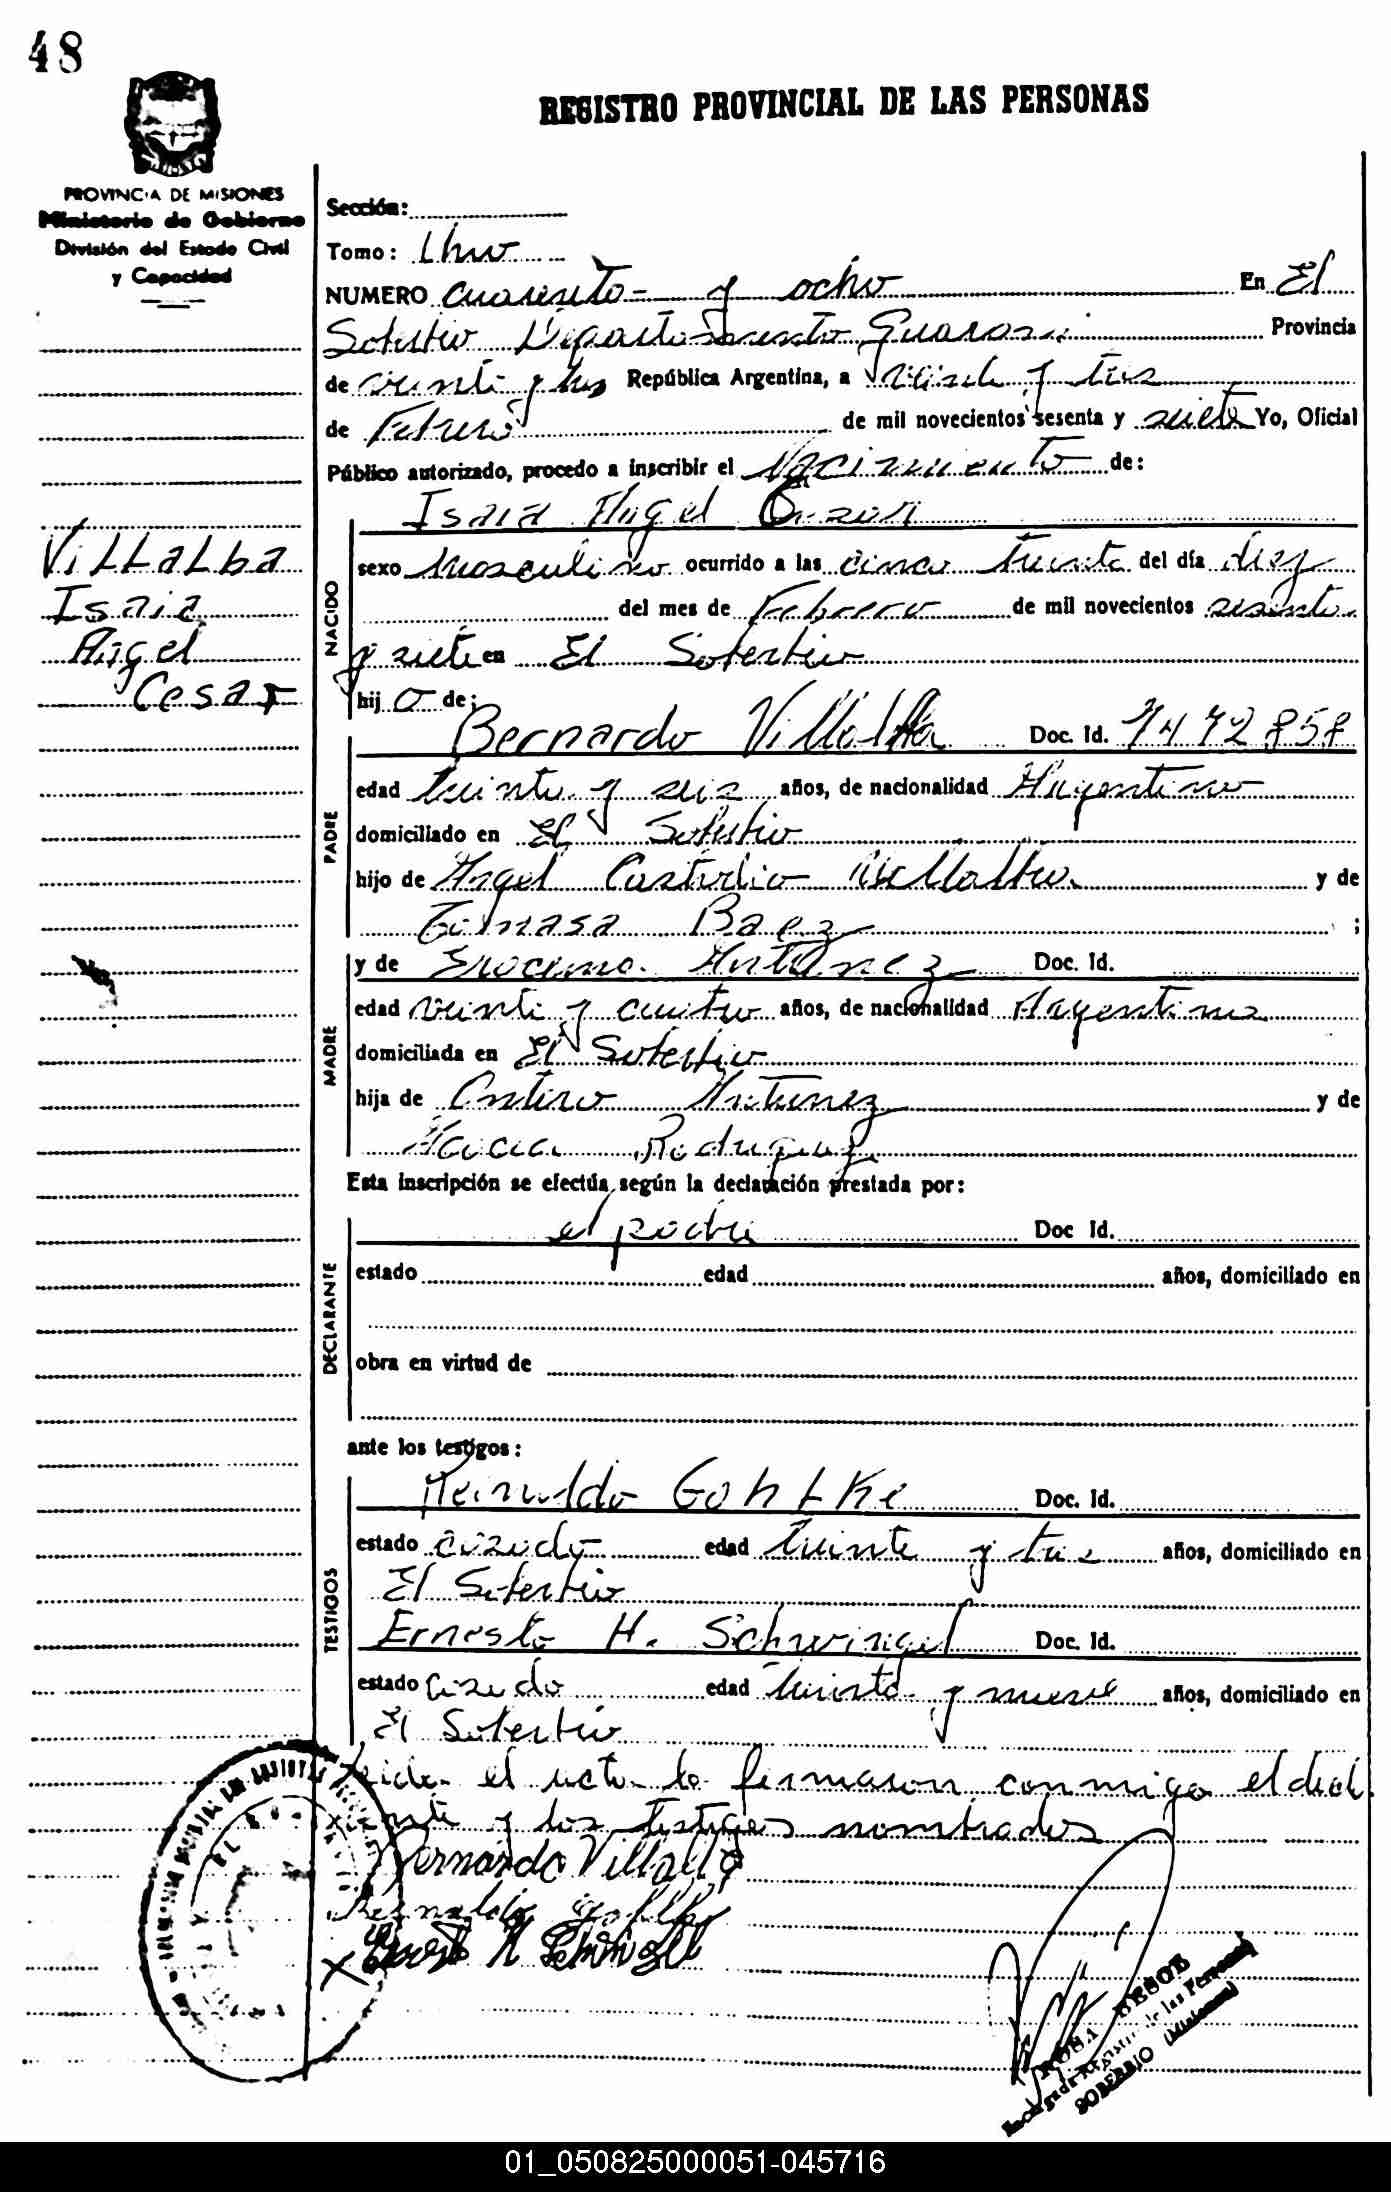 48
REGISTRO PROVINCIAL DE LAS PERSONAS
PROVINCIA DE MISIONES
Ministerio de Gobierno
División del Estado Civil
y Capacidad
Sección:
Tomo: Uno
NUMERO cuarenta y ocho En El
Soberbio Departamento Guarani Provincia
de República Argentina, a veinte y tres
de Febrero de mil novecientos sesenta y siete Yo, Oficial
Público autorizado, procedo a inscribir el Nacimiento de:
Isaia Angel
VILLALba
Isaia
Angel
Cesar
NACIDO
sexo masculino ocurrido a las cinco treinta del día diez
del mes de Febrero de mil novecientos sesenta
y siete en El Soberbio
hijo de:
PADRE
Bernardo Villalba Doc. Id. 7472858
edad treinta y seis años, de nacionalidad Argentino
domiciliado en El Soberbio
hijo de Angel Custodio Villalba y de
Tomasa Baez ;
MADRE
y de Antunez Doc. Id.
edad veinte y cuatro años, de nacionalidad Argentina
domiciliada en El Soberbio
hija de Antunez y de
Rodriguez
Esta inscripción se efectúa según la declaración prestada por:
DECLARANTE
el padre Doc Id.
estado edad años, domiciliado en
obra en virtud de
ante los testigos:
TESTIGOS
Reinaldo Gohlke Doc. Id.
estado casado edad treinta y tres años, domiciliado en
El Soberbio
Ernesto H. Schwingel Doc. Id.
estado casado edad treinta y nueve años, domiciliado en
El Soberbio
Leida el acta la firmaron conmigo el decla
rante y los testigos nombrados
Bernardo Villalba
ROSA BESOE
Encargada Registro de las Personas
SOBERBIO (Misiones)
01_050825000051-045716